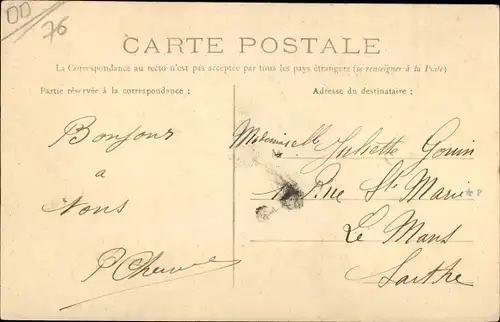 OD
76
CARTE POSTALE
La Correspondance au recto n'est pas acceptée par tous les pays étrangers (se renseigner à la Poste)
Partie réservée à la correspondance :
Adresse du destinataire :
Bonjour
a
Vous
Mademoiselle Juliette Gouin
Rue Ste Marie
Le Mans
Sarthe